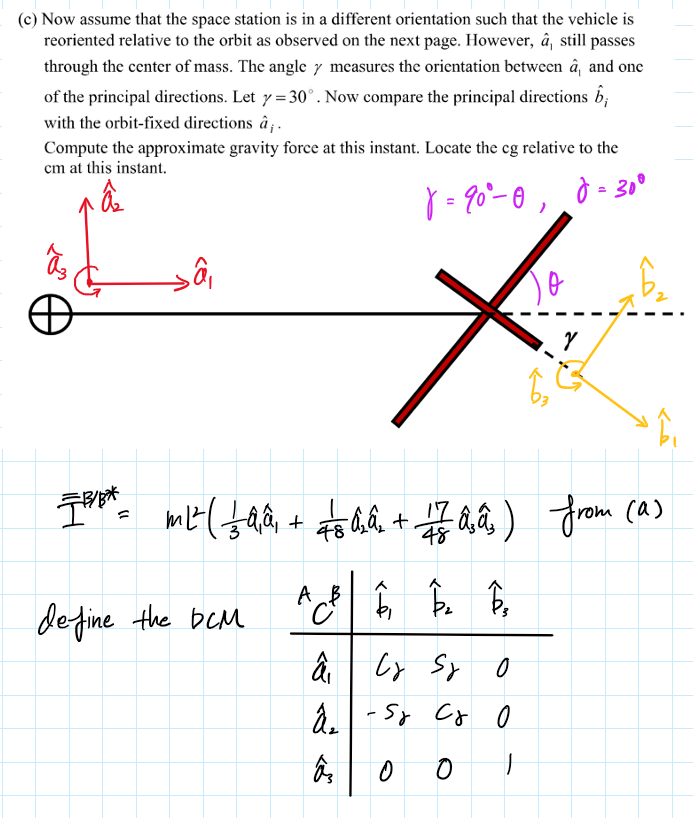 (c) Now assume that the space station is in a different orientation such that the vehicle is
reoriented relative to the orbit as observed on the next page. However, â₁ still passes
through the center of mass. The angle γ measures the orientation between â₁ and one
of the principal directions. Let γ = 30°. Now compare the principal directions b̂ᵢ
with the orbit-fixed directions âⱼ.
Compute the approximate gravity force at this instant. Locate the cg relative to the
cm at this instant.
γ = 90° - θ , γ = 30°
â₂
â₃
â₁
θ
b̂₂
γ
b̂₃
b̂₁
I^B/B* = mL²( 1/3 â₁â₁ + 1/48 â₂â₂ + 17/48 â₃â₃ ) from (a)
define the DCM
ᴬCᴮ b̂₁ b̂₂ b̂₃
â₁ Cγ Sγ 0
â₂ -Sγ Cγ 0
â₃ 0 0 1